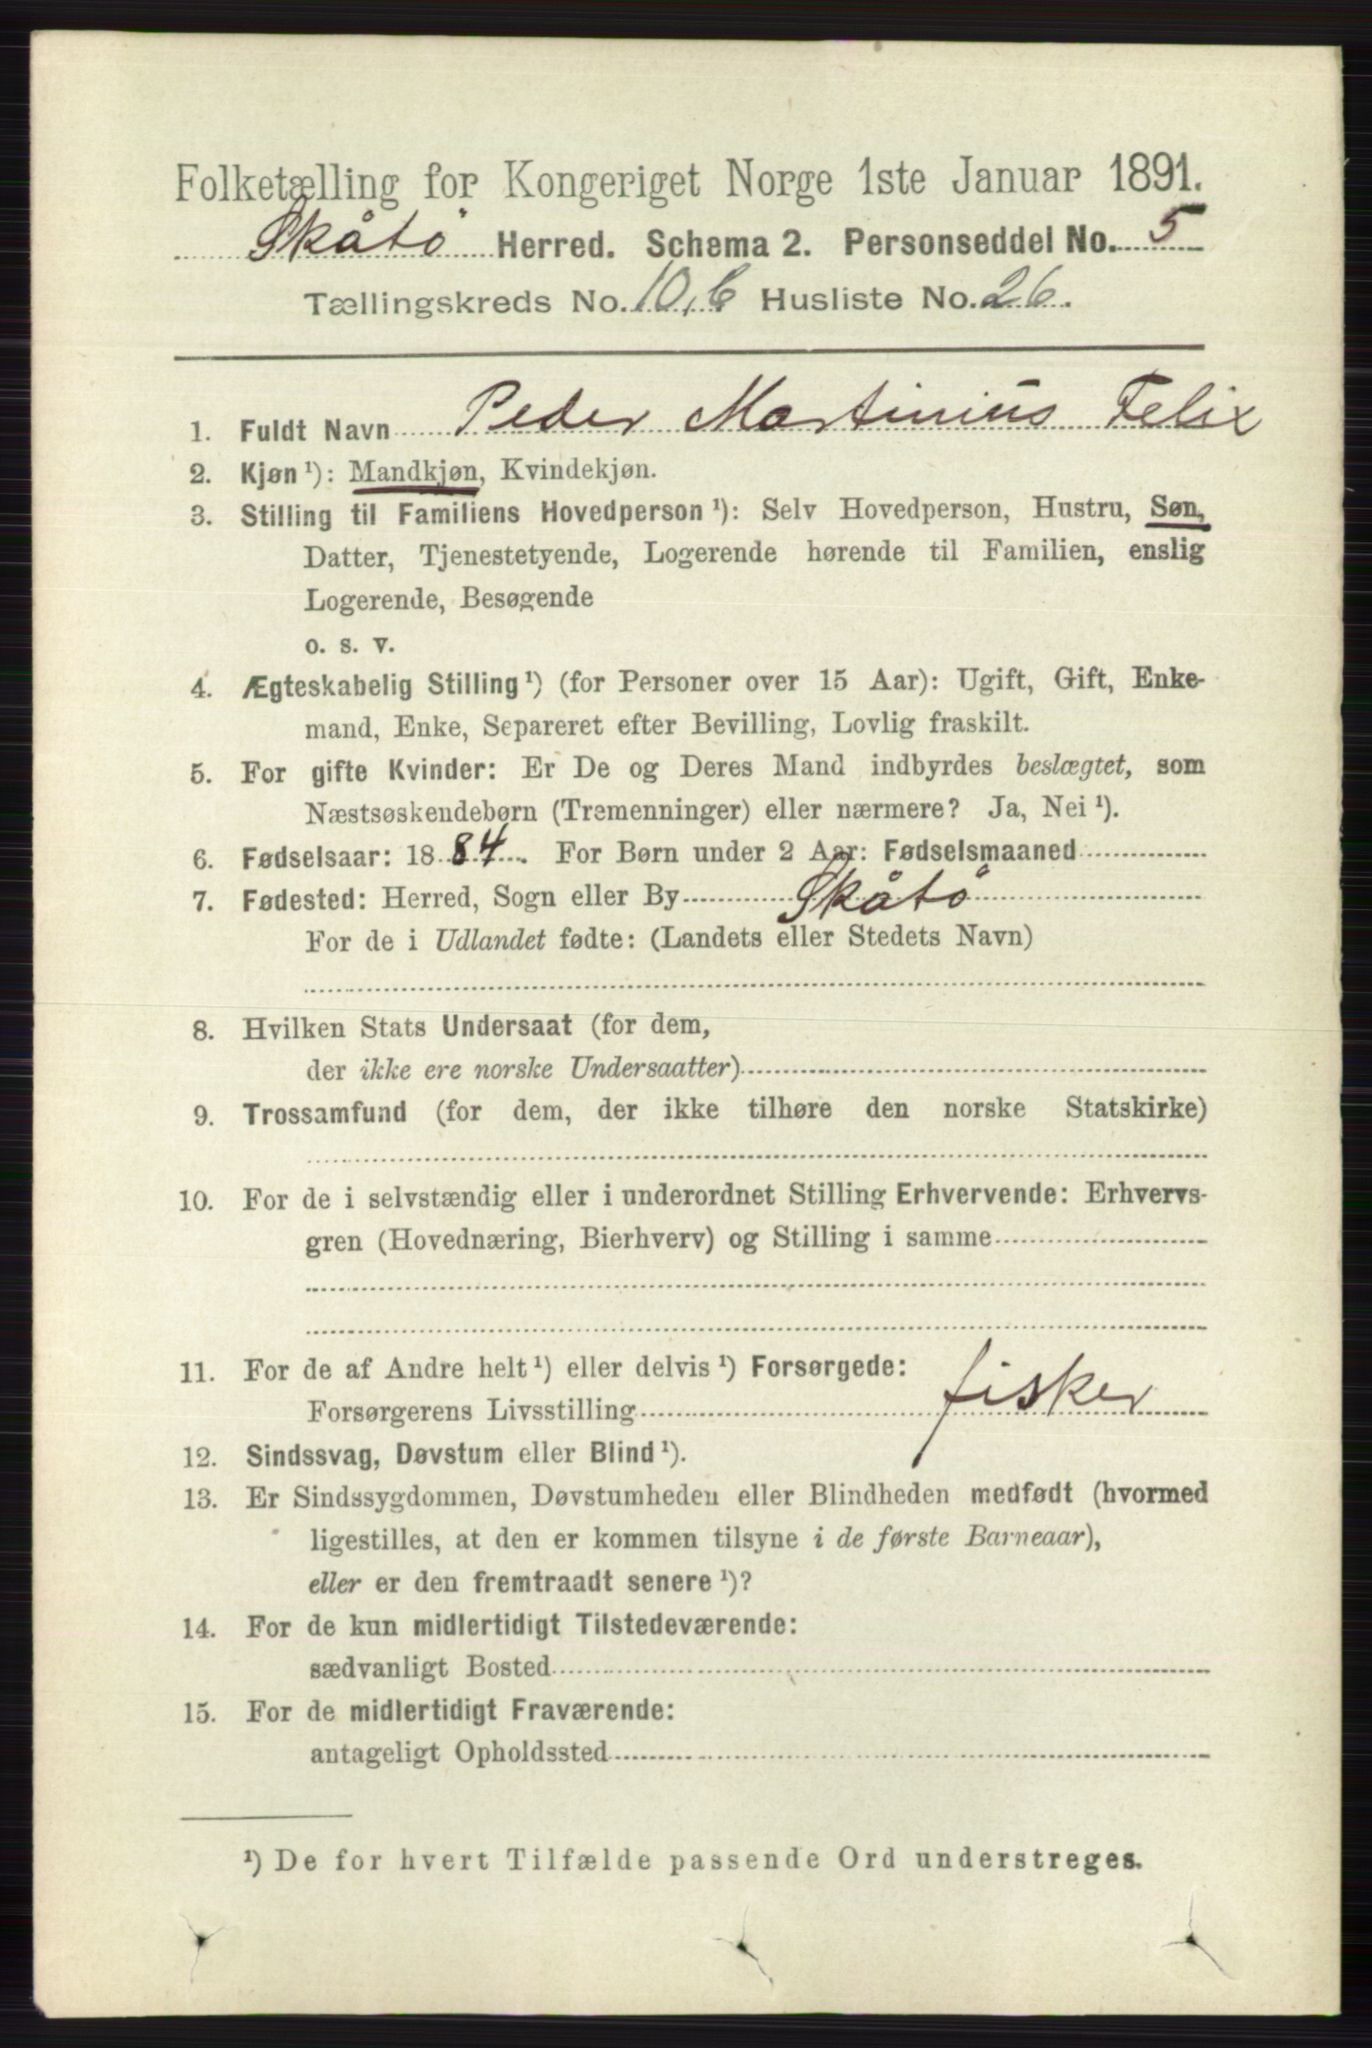 Folketælling for Kongeriget Norge 1ste Januar 1891.
Skåtö Herred. Schema 2. Personseddel No. 5
Tællingskreds No. 10,6 Husliste No. 26.
1. Fuldt Navn Peder Martinius Felix
2. Kjøn ¹): Mandkjøn, Kvindekjøn.
3. Stilling til Familiens Hovedperson ¹): Selv Hovedperson, Hustru, Søn,
Datter, Tjenestetyende, Logerende hørende til Familien, enslig
Logerende, Besøgende
o. s. v.
4. Ægteskabelig Stilling ¹) (for Personer over 15 Aar): Ugift, Gift, Enke-
mand, Enke, Separeret efter Bevilling, Lovlig fraskilt.
5. For gifte Kvinder: Er De og Deres Mand indbyrdes beslægtet, som
Næstsøskendebørn (Tremenninger) eller nærmere? Ja, Nei ¹).
6. Fødselsaar: 1884. For Børn under 2 Aar: Fødselsmaaned
7. Fødested: Herred, Sogn eller By Skåtö
For de i Udlandet fødte: (Landets eller Stedets Navn)
8. Hvilken Stats Undersaat (for dem,
der ikke ere norske Undersaatter)
9. Trossamfund (for dem, der ikke tilhøre den norske Statskirke)
10. For de i selvstændig eller i underordnet Stilling Erhvervende: Erhvervs-
gren (Hovednæring, Bierhverv) og Stilling i samme
11. For de af Andre helt ¹) eller delvis ¹) Forsørgede:
Forsørgerens Livsstilling fisker
12. Sindssvag, Døvstum eller Blind ¹).
13. Er Sindssygdommen, Døvstumheden eller Blindheden medfødt (hvormed
ligestilles, at den er kommen tilsyne i de første Barneaar),
eller er den fremtraadt senere ¹)?
14. For de kun midlertidigt Tilstedeværende:
sædvanligt Bosted
15. For de midlertidigt Fraværende:
antageligt Opholdssted
¹) De for hvert Tilfælde passende Ord understreges.